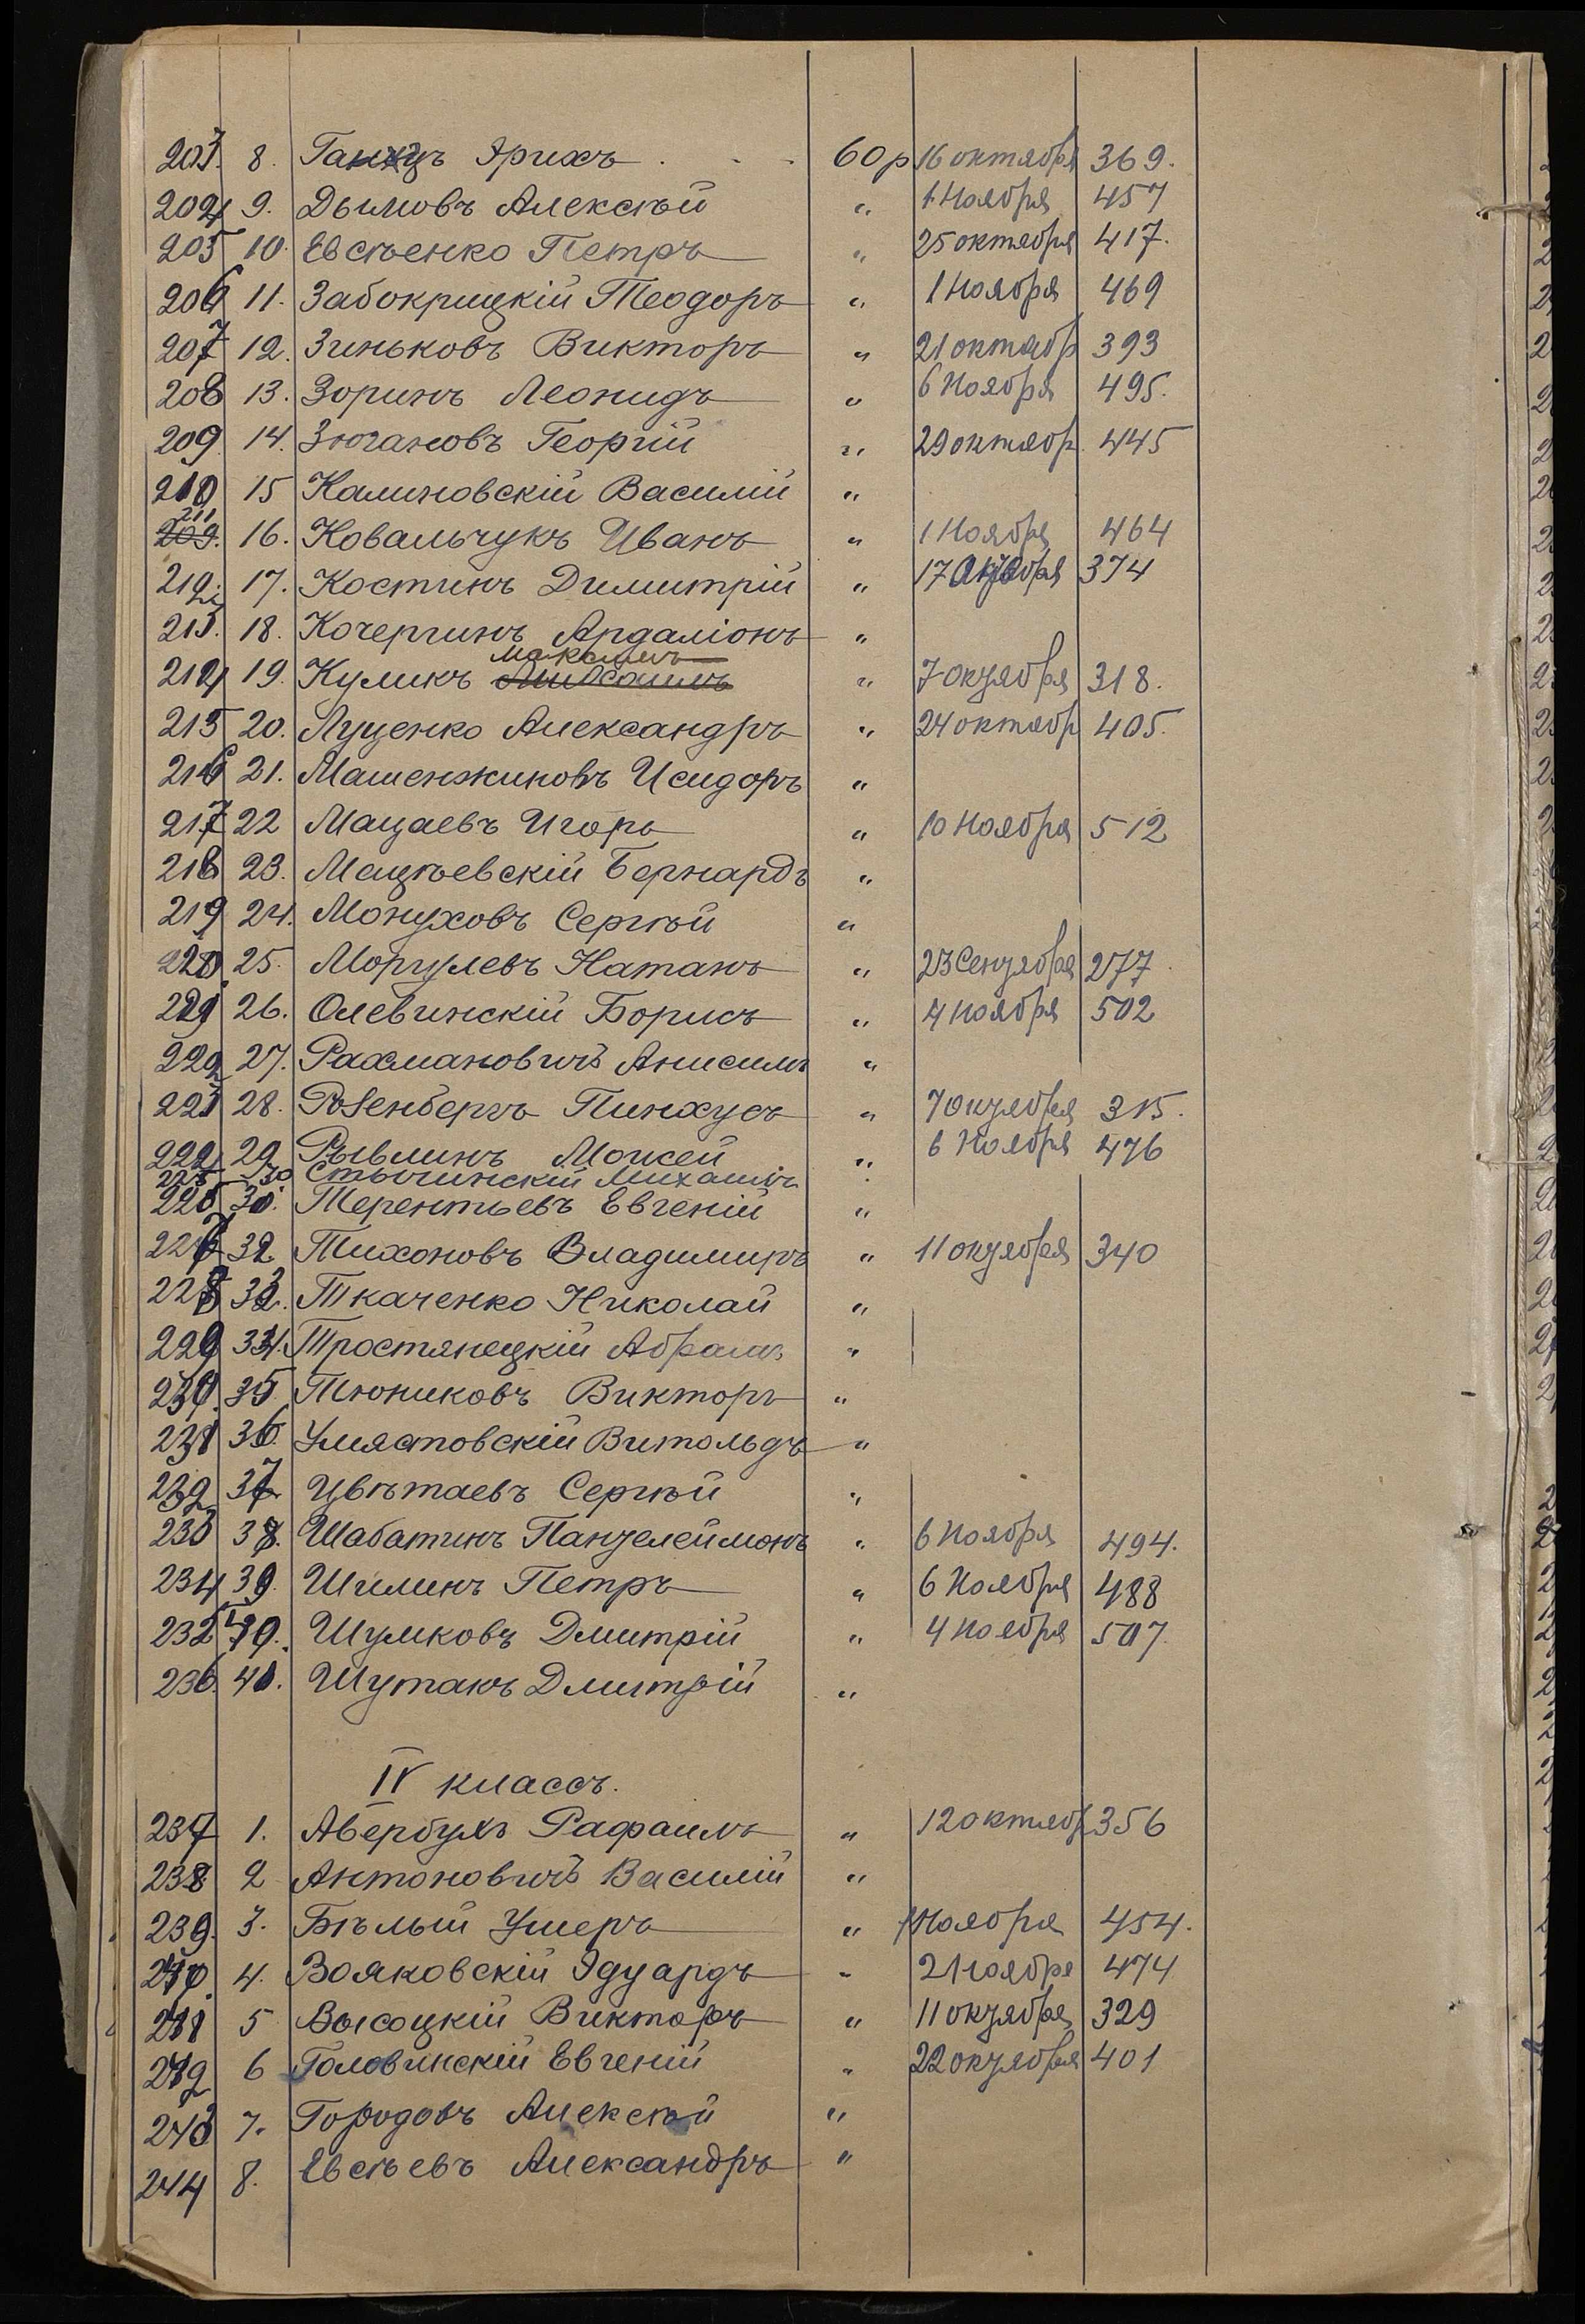 203. 8. Ганцъ Эрихъ 60 р 16 октября 369.
204 9. Дымовъ Алексѣй " 1 Ноября 457
205 10. Евсѣенко Петръ " 25 октября 417.
206 11. Забокрицкій Теодоръ " 1 Ноября 469
207 12. Зиньковъ Викторъ " 21 октябр 393
208 13. Зоринъ Леонидъ " 6 Ноября 495.
209 14. Зюгановъ Георгій " 29 октябр. 445
210 15 Калиновскій Василій "
211 16. Ковальчукъ Иванъ " 1 Ноября 464
212 17. Костинъ Димитрій " 17 Октября 374
213. 18. Кочергинъ Ардаліонъ "
214 19. Куликъ Максимъ " 7 октября 318.
215 20. Луценко Александръ " 24 октябр 405.
216 21. Машенжиновъ Исидоръ "
217 22 Мацаевъ Игорь " 10 Ноября 512
218 23. Мацѣевскій Бернардъ "
219 24. Монуховъ Сергѣй "
220 25. Моргулевъ Натанъ " 23 Сентября 277.
221 26. Олевинскій Борисъ " 4 ноября 502
222 27. Рахмановичъ Анисимъ "
223 28. Розенбергъ Пинхусъ " 7 октября 315.
224 29 Рывлинъ Моисей " 6 Ноября 476
225 30 Стычинскій Михаилъ "
226 31. Терентьевъ Евгеній "
227 32 Тихоновъ Владимиръ " 11 октября 340
228 33. Ткаченко Николай "
229 34. Тростянецкій Абрамъ "
230. 35. Тюниковъ Викторъ "
231 36. Умястовскій Витольдъ "
232 37 Цвѣтаевъ Сергѣй "
233 38. Шабатинъ Пантелеймонъ " 6 Ноября 494.
234 39. Шилинъ Петръ " 6 Ноября 488
235 40. Шумковъ Дмитрій " 4 Ноября 507.
236. 41. Шутакъ Дмитрій "
IV классъ.
237 1. Авербухъ Рафаилъ " 12 октябр 356
238 2 Антоновичъ Василій "
239. 3. Бѣлый Умеръ " 1 Ноября 454.
240. 4. Вояковскій Эдуардъ " 2 Ноября 474
241 5 Высоцкій Викторъ " 11 октября 329
242 6 Головинскій Евгеній " 22 октября 401
243 7. Городовъ Алексѣй "
244 8. Евсѣевъ Александръ "